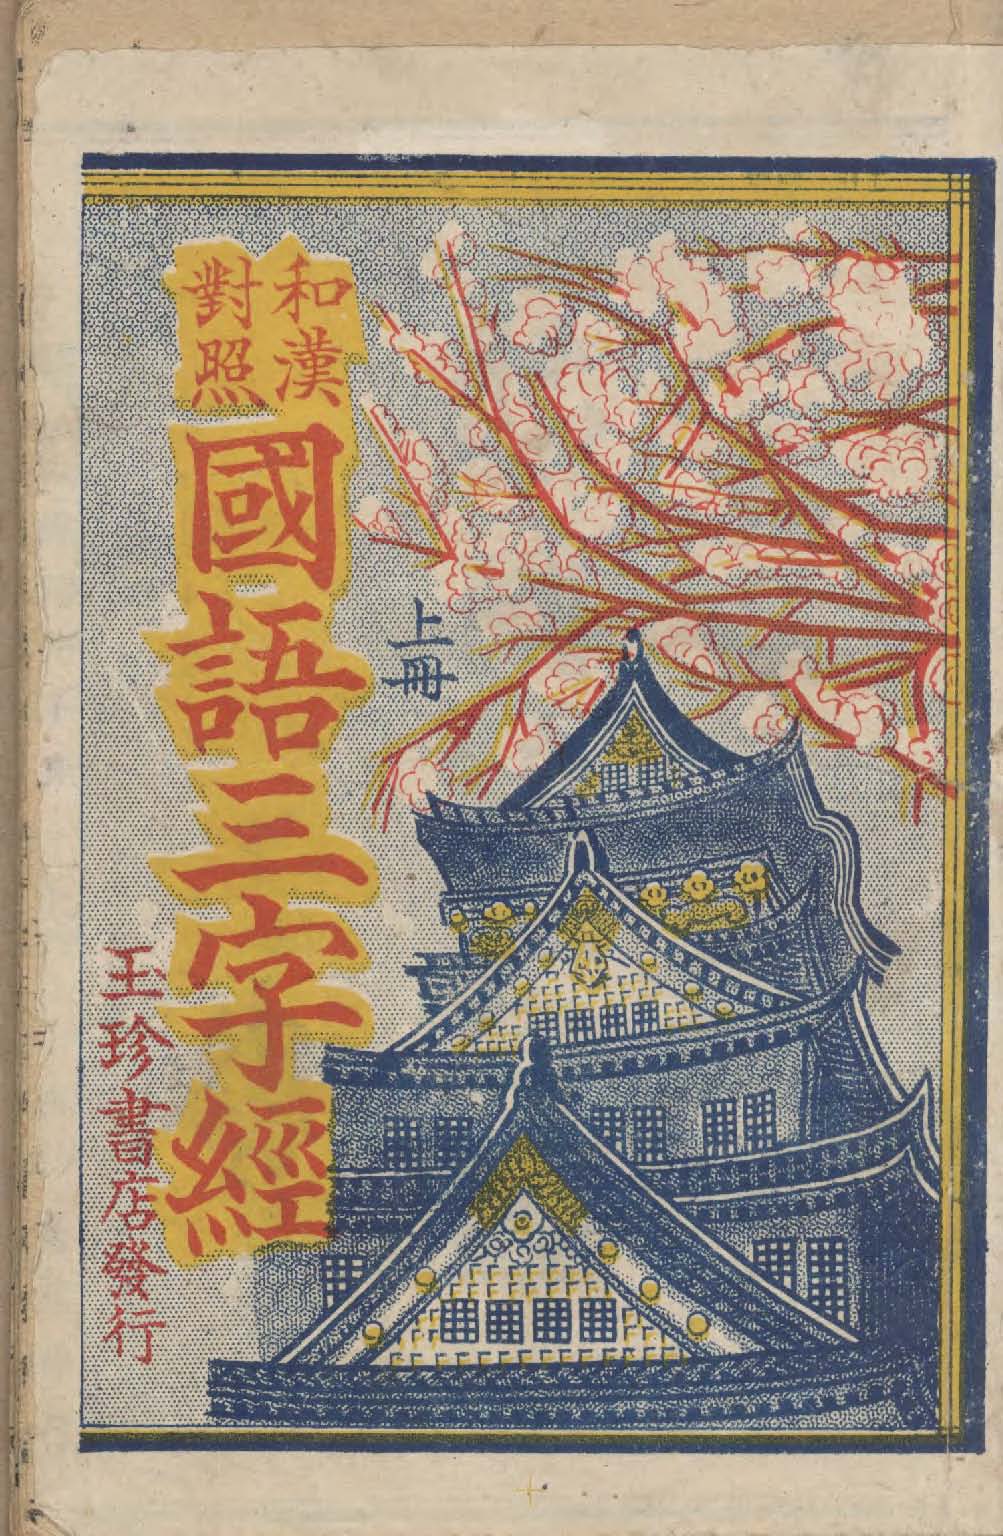 和漢
對照
國語三字經
上冊
玉珍書店發行